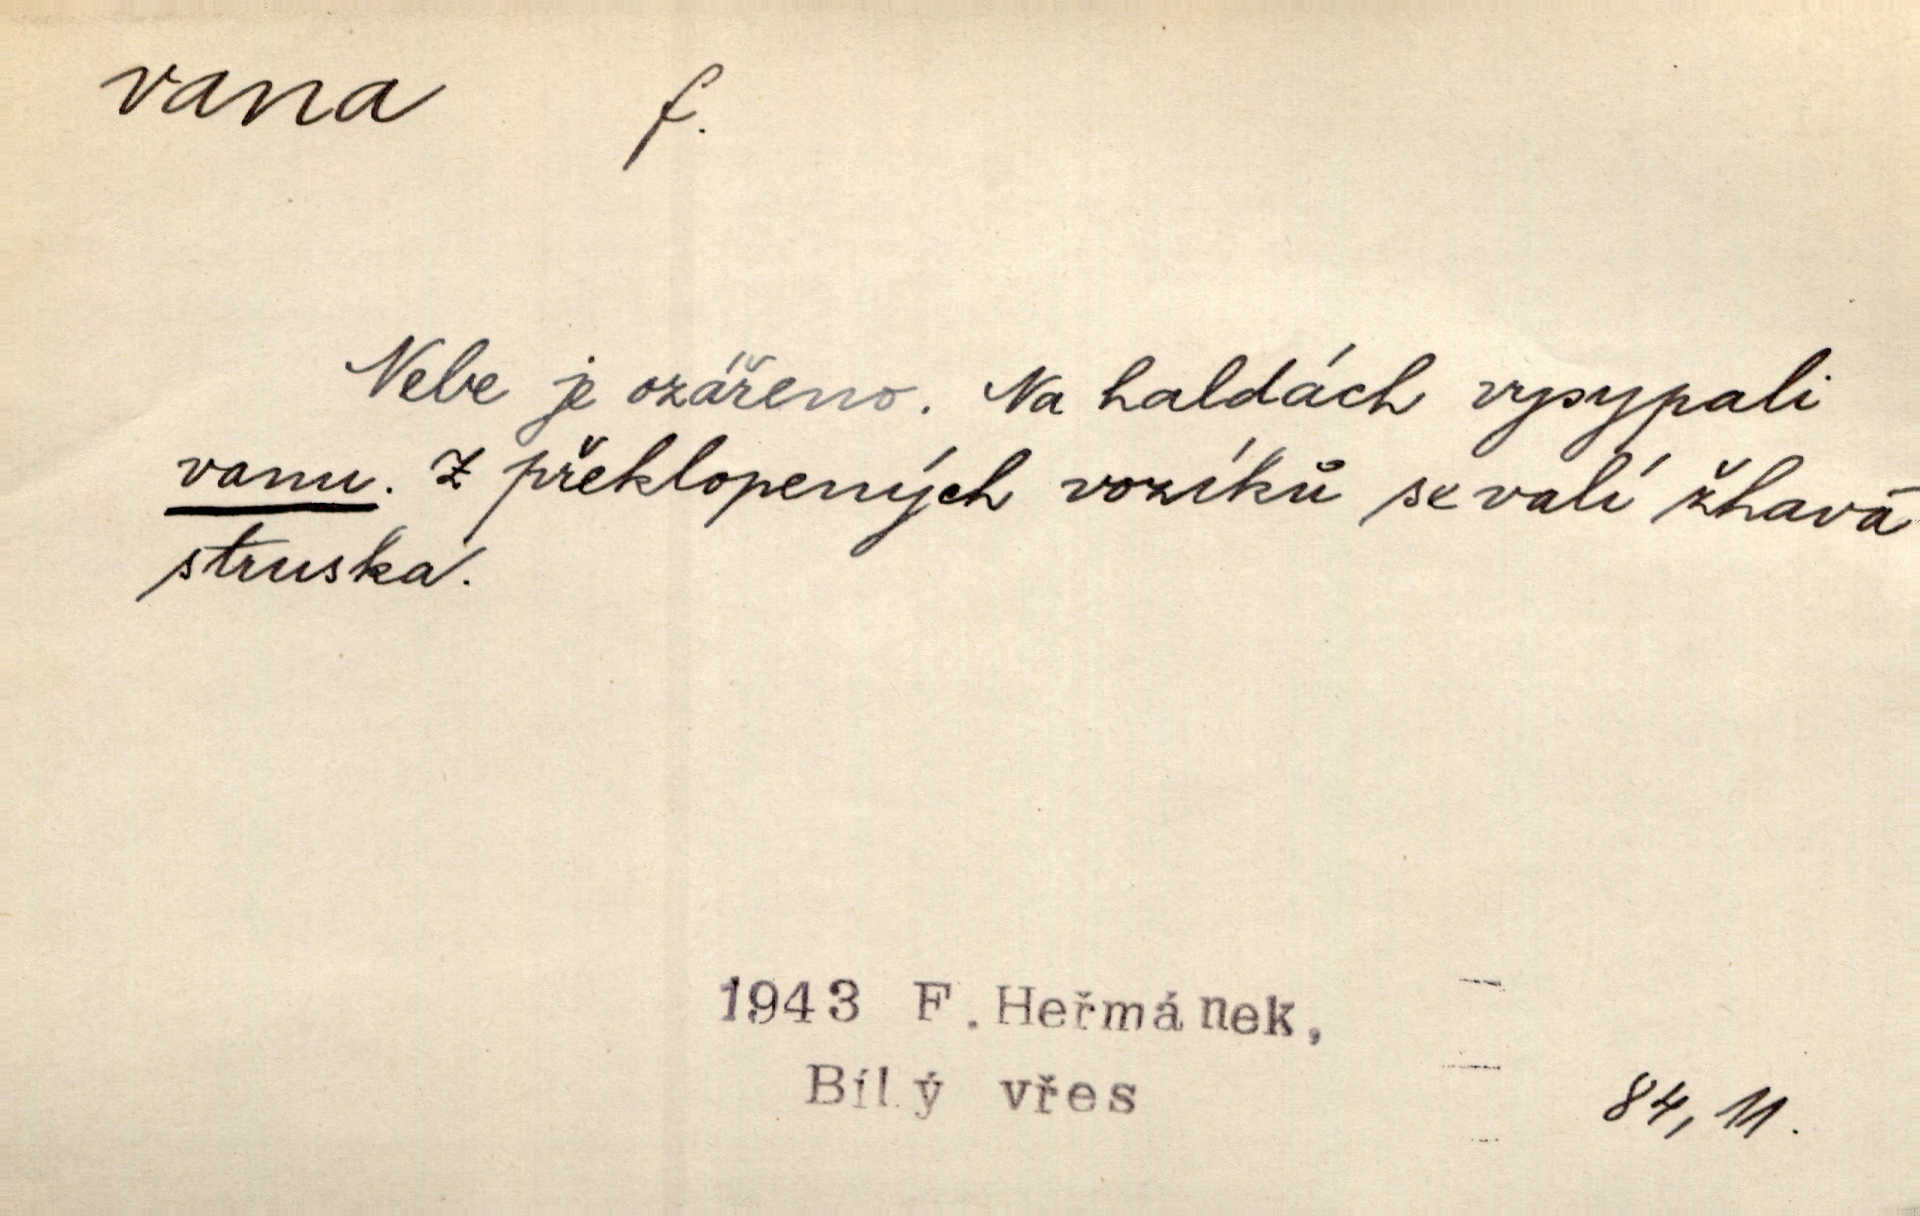 vana f.
Nebe je ozářeno. Na haldách vysypali
vanu. Z překlopených vozíků se valí žhavá
struska.
1943 F. Heřmánek,
Bílý vřes
84, 11.